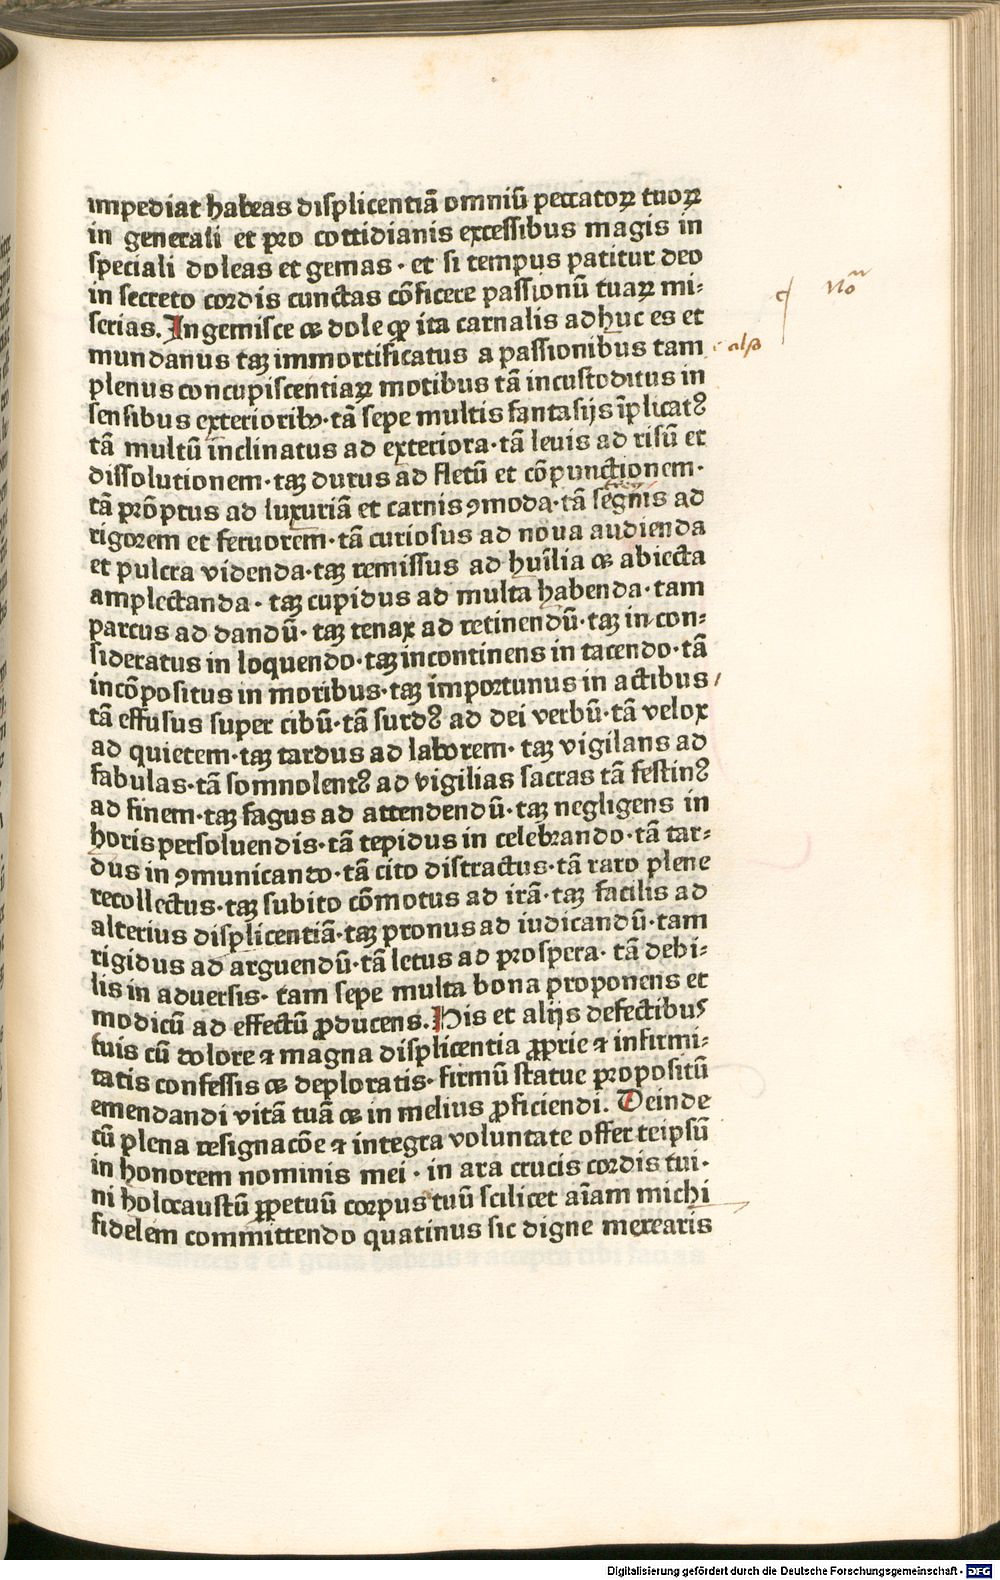 impediat habeas displicentiā omniū peccatoꝝ tuoꝝ
in generali et pro cottidianis excessibus magis in
speciali doleas et gemas · et si tempus patitur deo
in secreto cordis cunctas cōfitere passionū tuaꝝ mi⸗
serias. Ingemisce ac dole qꝙ ita carnalis adhuc es et
mundanus taꝫ immortificatus a passionibus tam
plenus concupiscentiaꝝ motibus tā incustoditus in
sensibus exterioribꝫ · tā sepe multis fantasijs īplicatꝰ
tā multū inclinatus ad exteriora · tā levis ad risū et
dissolutionem · taꝫ durus ad fletū et cōpunctionem ·
tā prōptus ad luxuriā et carnis ꝯmoda · tā segnis ad
rigorem et feruorem · tā curiosus ad noua audienda
et pulcra videnda · taꝫ remissus ad hūilia ac abiecta
amplectanda · taꝫ cupidus ad multa habenda · tam
parcus ad dandū · taꝫ tenax ad retinendū · taꝫ in con⸗
sideratus in loquendo · taꝫ incontinens in tacendo · tā
incōpositus in moribus · taꝫ importunus in actibus
tā effusus super cibū · tā surdꝰ ad dei verbū · tā velox
ad quietem · taꝫ tardus ad laborem · taꝫ vigilans ad
fabulas · tā somnolentꝰ ad vigilias sacras tā festinꝰ
ad finem · taꝫ fagus ad attendendū · taꝫ negligens in
horis persoluendis · tā tepidus in celebrando · tā tar⸗
dus in ꝯmunicando · tā cito distractus · tā raro plene
recollectus · taꝫ subito cōmotus ad irā · taꝫ facilis ad
alterius displicentiā · taꝫ pronus ad iudicandū · tam
rigidus ad arguendū · tā letus ad prospera · tā debi⸗
lis in adversis · tam sepe multa bona proponens et
modicū ad effectū ꝓducens. His et alijs defectibus
tuis cū dolore ⁊ magna displicentia ꝓprie ⁊ infirmi⸗
tatis confessis ac deploratis · firmū statue propositū
emendandi vitā tuā ac in melius ꝓficiendi. Deinde
cū plena resignacōe ⁊ integra voluntate offer teipsū
in honorem nominis mei · in ara crucis cordis tui ·
ni holocaustū ꝑpetuū corpus tuū scilicet aīam michi
fidelem committendo quatinus sic digne merearis
Digitalisierung gefördert durch die Deutsche Forschungsgemeinschaft - DFG